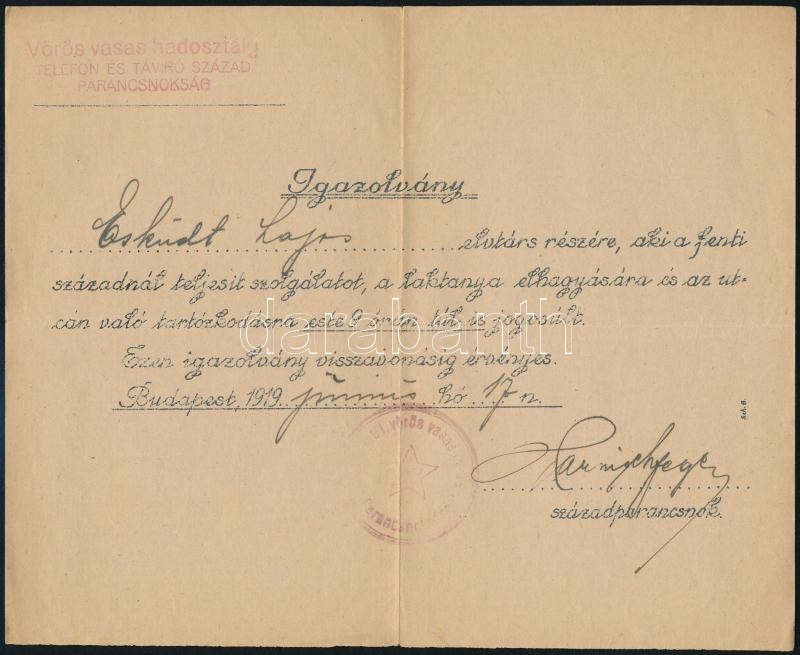 Vörös vasas hadosztály
TELEFON ÉS TÁVIRÓ SZÁZAD
PARANCSNOKSÁG
Igazolvány
Esküdt Lajos elvtárs részére, aki a fenti
századnál teljesit szolgálatot, a laktanya elhagyására és az ut-
cán való tartózkodásra este 9 órán túl is jogosúlt.
Ezen igazolvány visszavonásig érvényes.
Budapest, 1919 június hó 17 n.
vörös vasas
századparancsnok.
darabanth